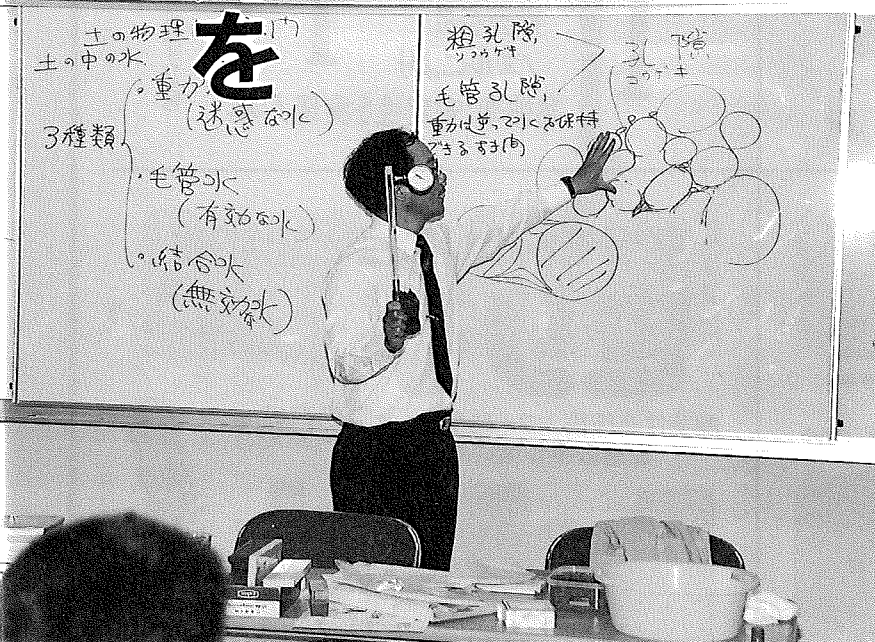 を
土の物理
土の中の水
3種類
・重力
(迷惑な水)
・毛管水
(有効な水)
・結合水
(無効な水)
粗孔隙,
ソコウゲキ
毛管孔隙,
重力に逆って水を保持
できるすき間
孔隙
コウゲキ